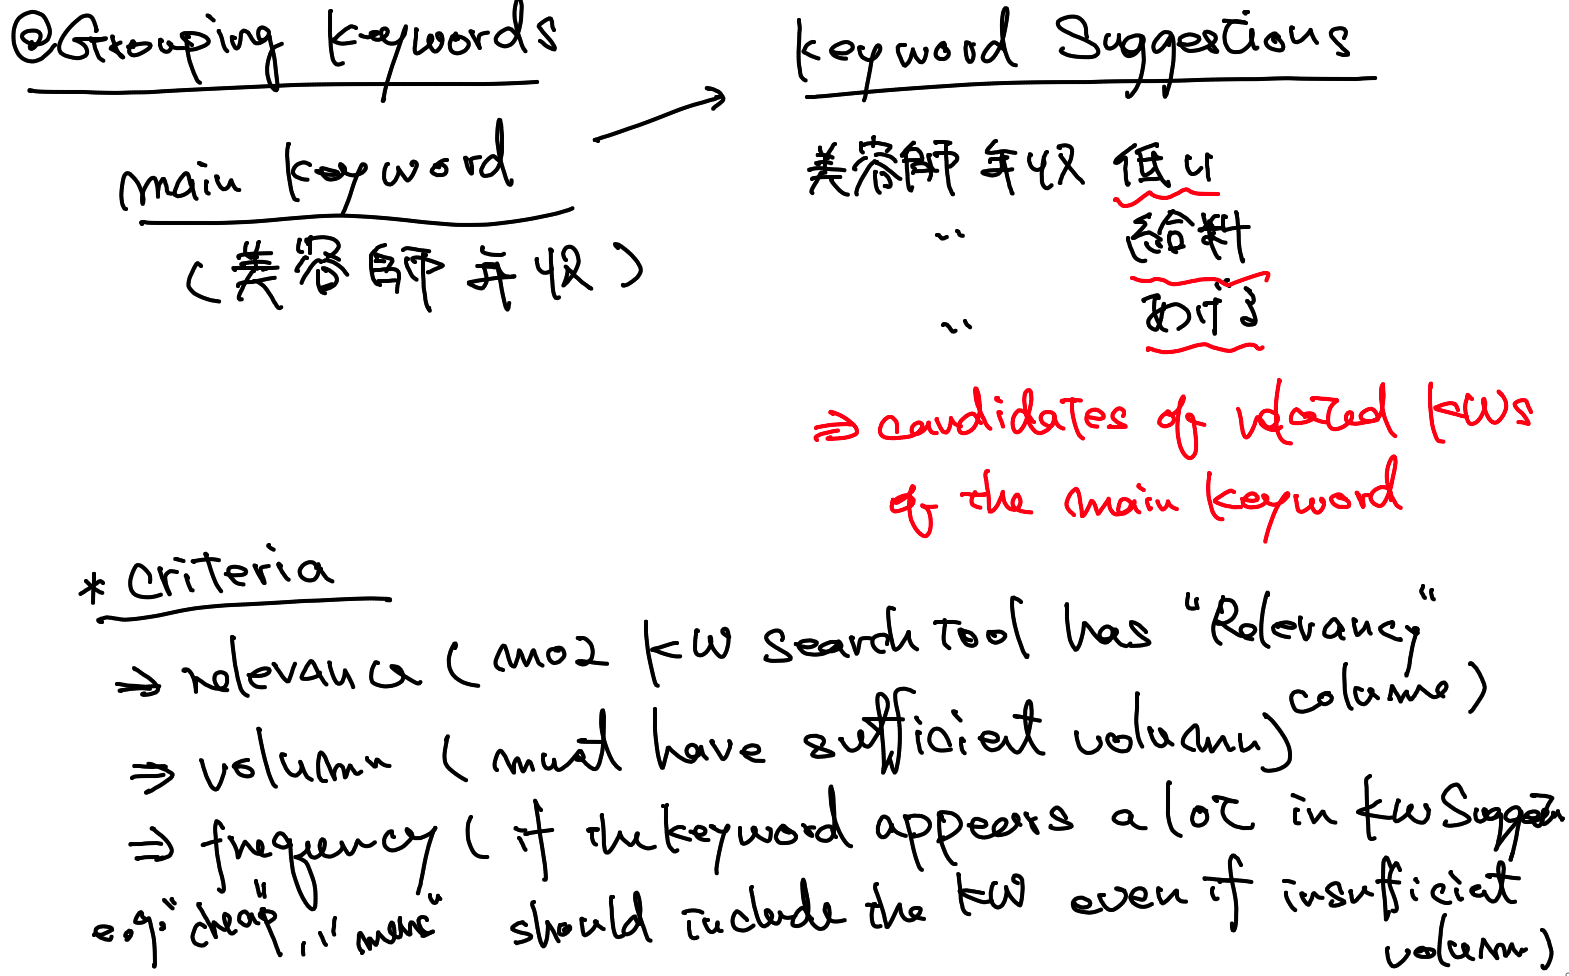 @Grouping Keywords
main keyword
(美容師 年収)
Keyword Suggestions
美容師 年収 低い
〃 給料
〃 あげる
⇒ candidates of related KWs
of the main keyword
* Criteria
⇒ relevance (moz KW search tool has "Relevancy"
colume)
⇒ volumn (must have sufficient volumn)
⇒ frequency (if the keyword appears a lot in KW Sugges
e.g. "cheap", "mens" should include the KW even if insufficient
volumn)